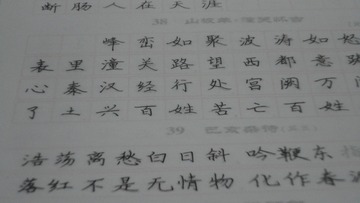 断肠人在天涯
38 山坡羊·潼关怀古
峰峦如聚波涛如怒
表里潼关路望西都意踌
心秦汉经行处宫阙万间
了土兴百姓苦亡百姓
39 己亥杂诗
浩荡离愁白日斜 吟鞭东指
落红不是无情物 化作春